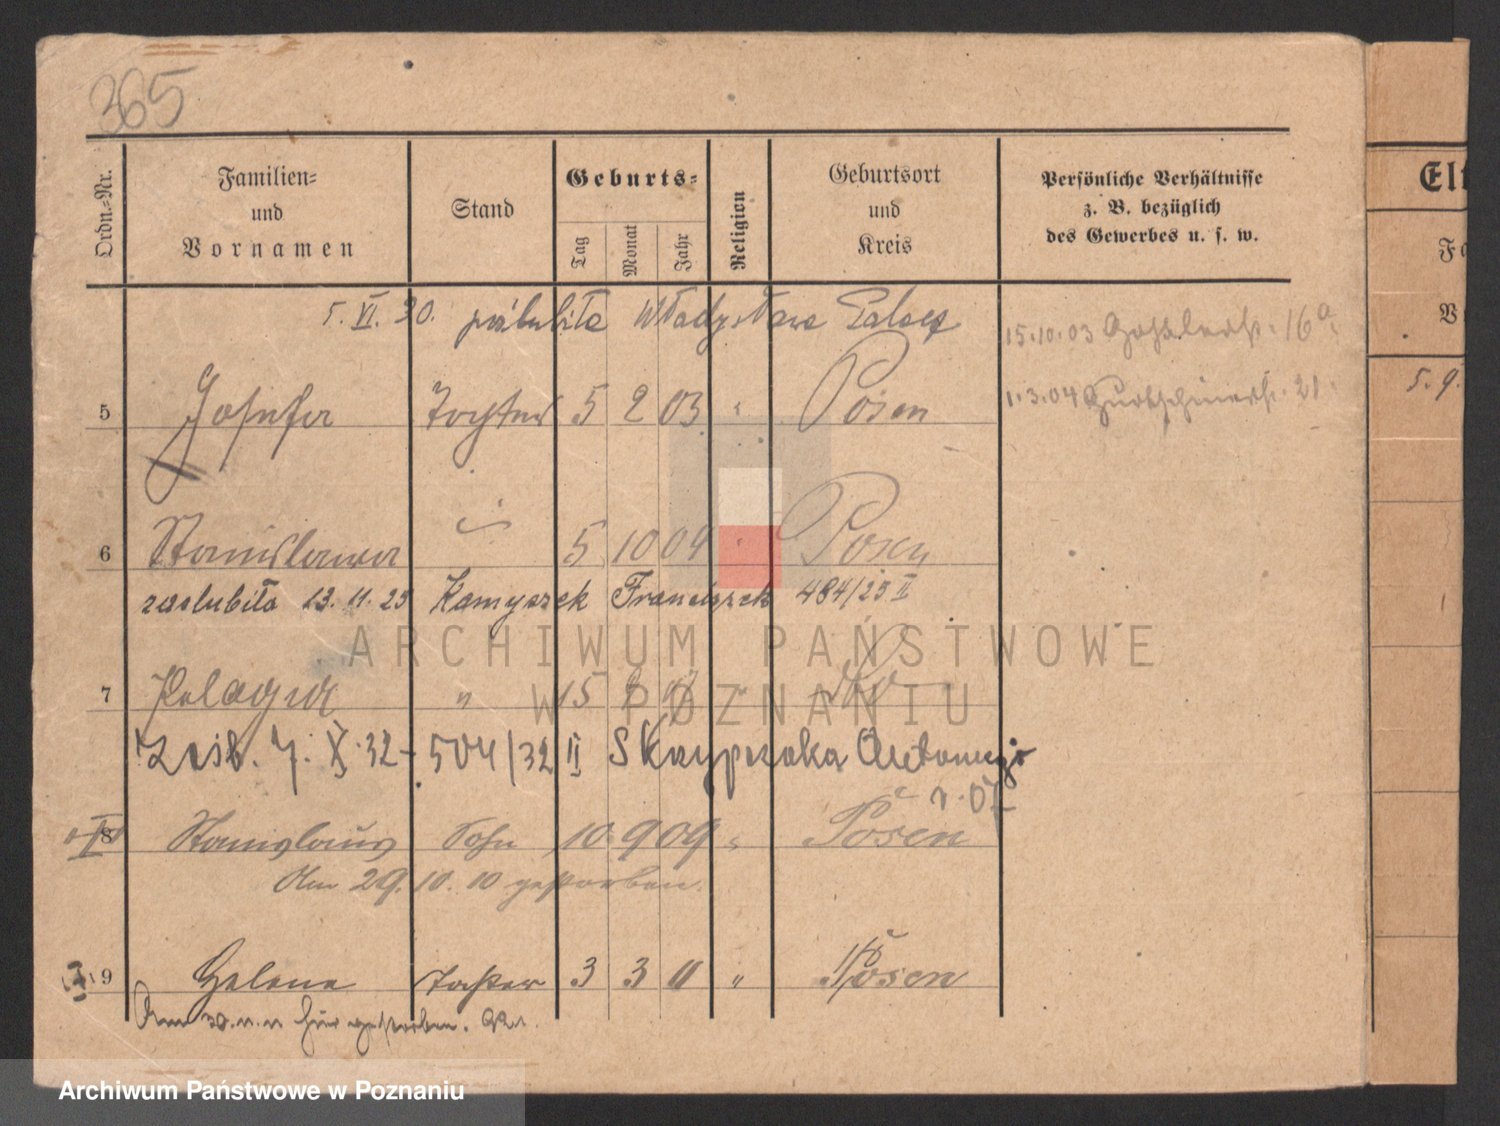 365
Ordn.-Nr.
Familien-
und
Vornamen
Stand
Geburts-
Tag
Monat
Jahr
Religion
Geburtsort
und
Kreis
Persönliche Verhältnisse
z. B. bezüglich
des Gewerbes u. s. w.
5. VI. 30. poślubiła Władysława
15.10.03 16a
5 Josefa Tochter 5 2 03 " Posen
1.3.04 21
6 Stanislawa " 5 10 04 " Posen
zaślubiła 13. 11. 23 Kamyszek Franciszek 484/23 II
7 Pelagia " 15
Zaśb. 7. X. 32 - 504/32 II Skrzypczaka Antoniego
r. 07
8 Stanislaus Sohn 10 9 09 " Posen
Am 29. 10. 10 gestorben.
9 Helene Tochter 3 3 11 " Posen
Am 30. hier gestorben.
Elt
Fa
V
5. 9.
ARCHIWUM PAŃSTWOWE
W POZNANIU
Archiwum Państwowe w Poznaniu